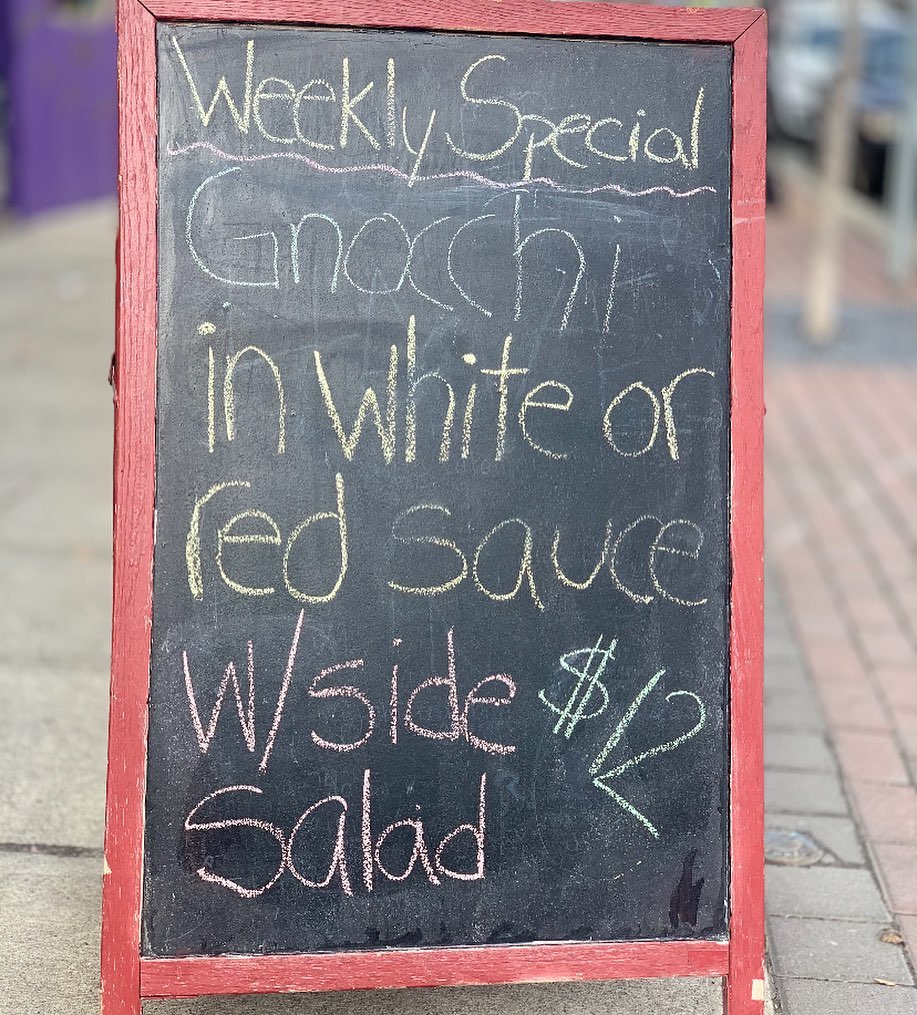 Weekly Special
Gnocchi
in white or
red sauce
w/ side $12
Salad